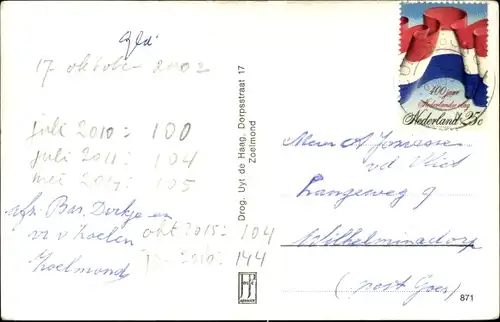 Gld
17 oktober 2002
juli 2010: 100
juli 2011: 104
mei 2017: 105
afz. Bas, Dirkje en
v. Zoelen
okt 2015: 104
2016: 144
Zoelmond
Drog. Uyt de Haag, Dorpsstraat 17
Zoelmond
400 jaar
Nederlandse vlag
Nederland 25c
Mevr. A
vd Vliet
Langeweg 9
Wilhelminadorp
(post Goes)
871